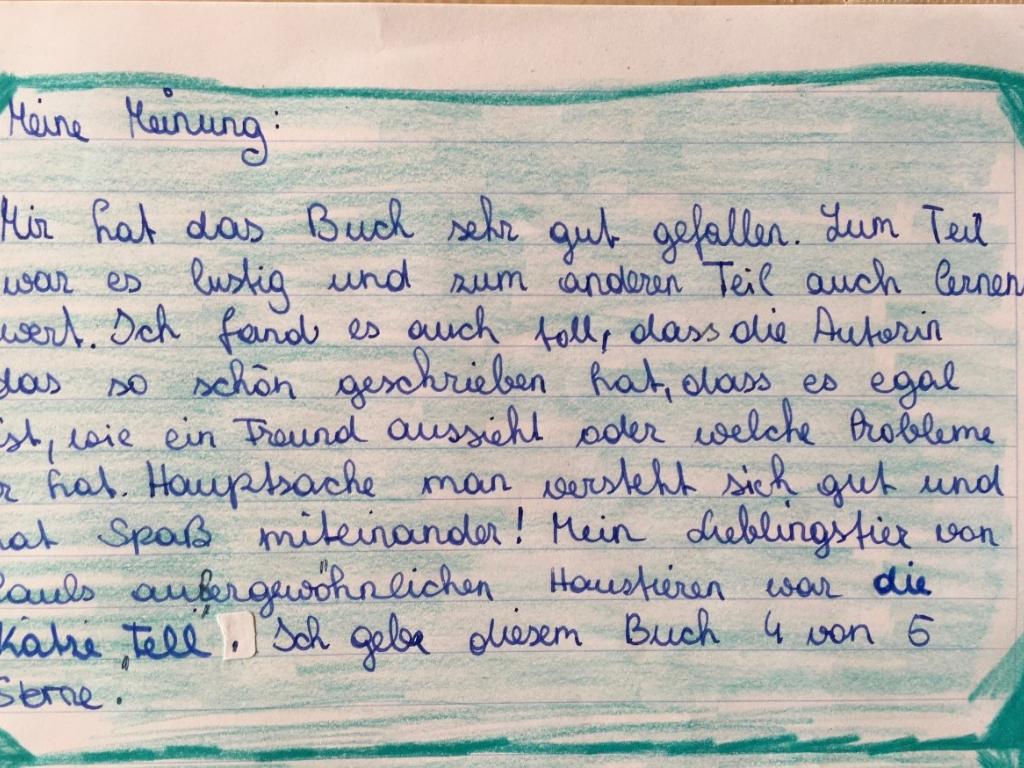 Meine Meinung:
Mir hat das Buch sehr gut gefallen. Zum Teil
war es lustig und zum anderen Teil auch lernen
wert. Ich fand es auch toll, dass die Autorin
das so schön geschrieben hat, dass es egal
ist, wie ein Freund aussieht oder welche Probleme
er hat. Hauptsache man versteht sich gut und
hat Spaß miteinander! Mein Lieblingstier von
Pauls außergewöhnlichen Haustieren war die
Katze „Tell". Ich gebe diesem Buch 4 von 5
Sterne.